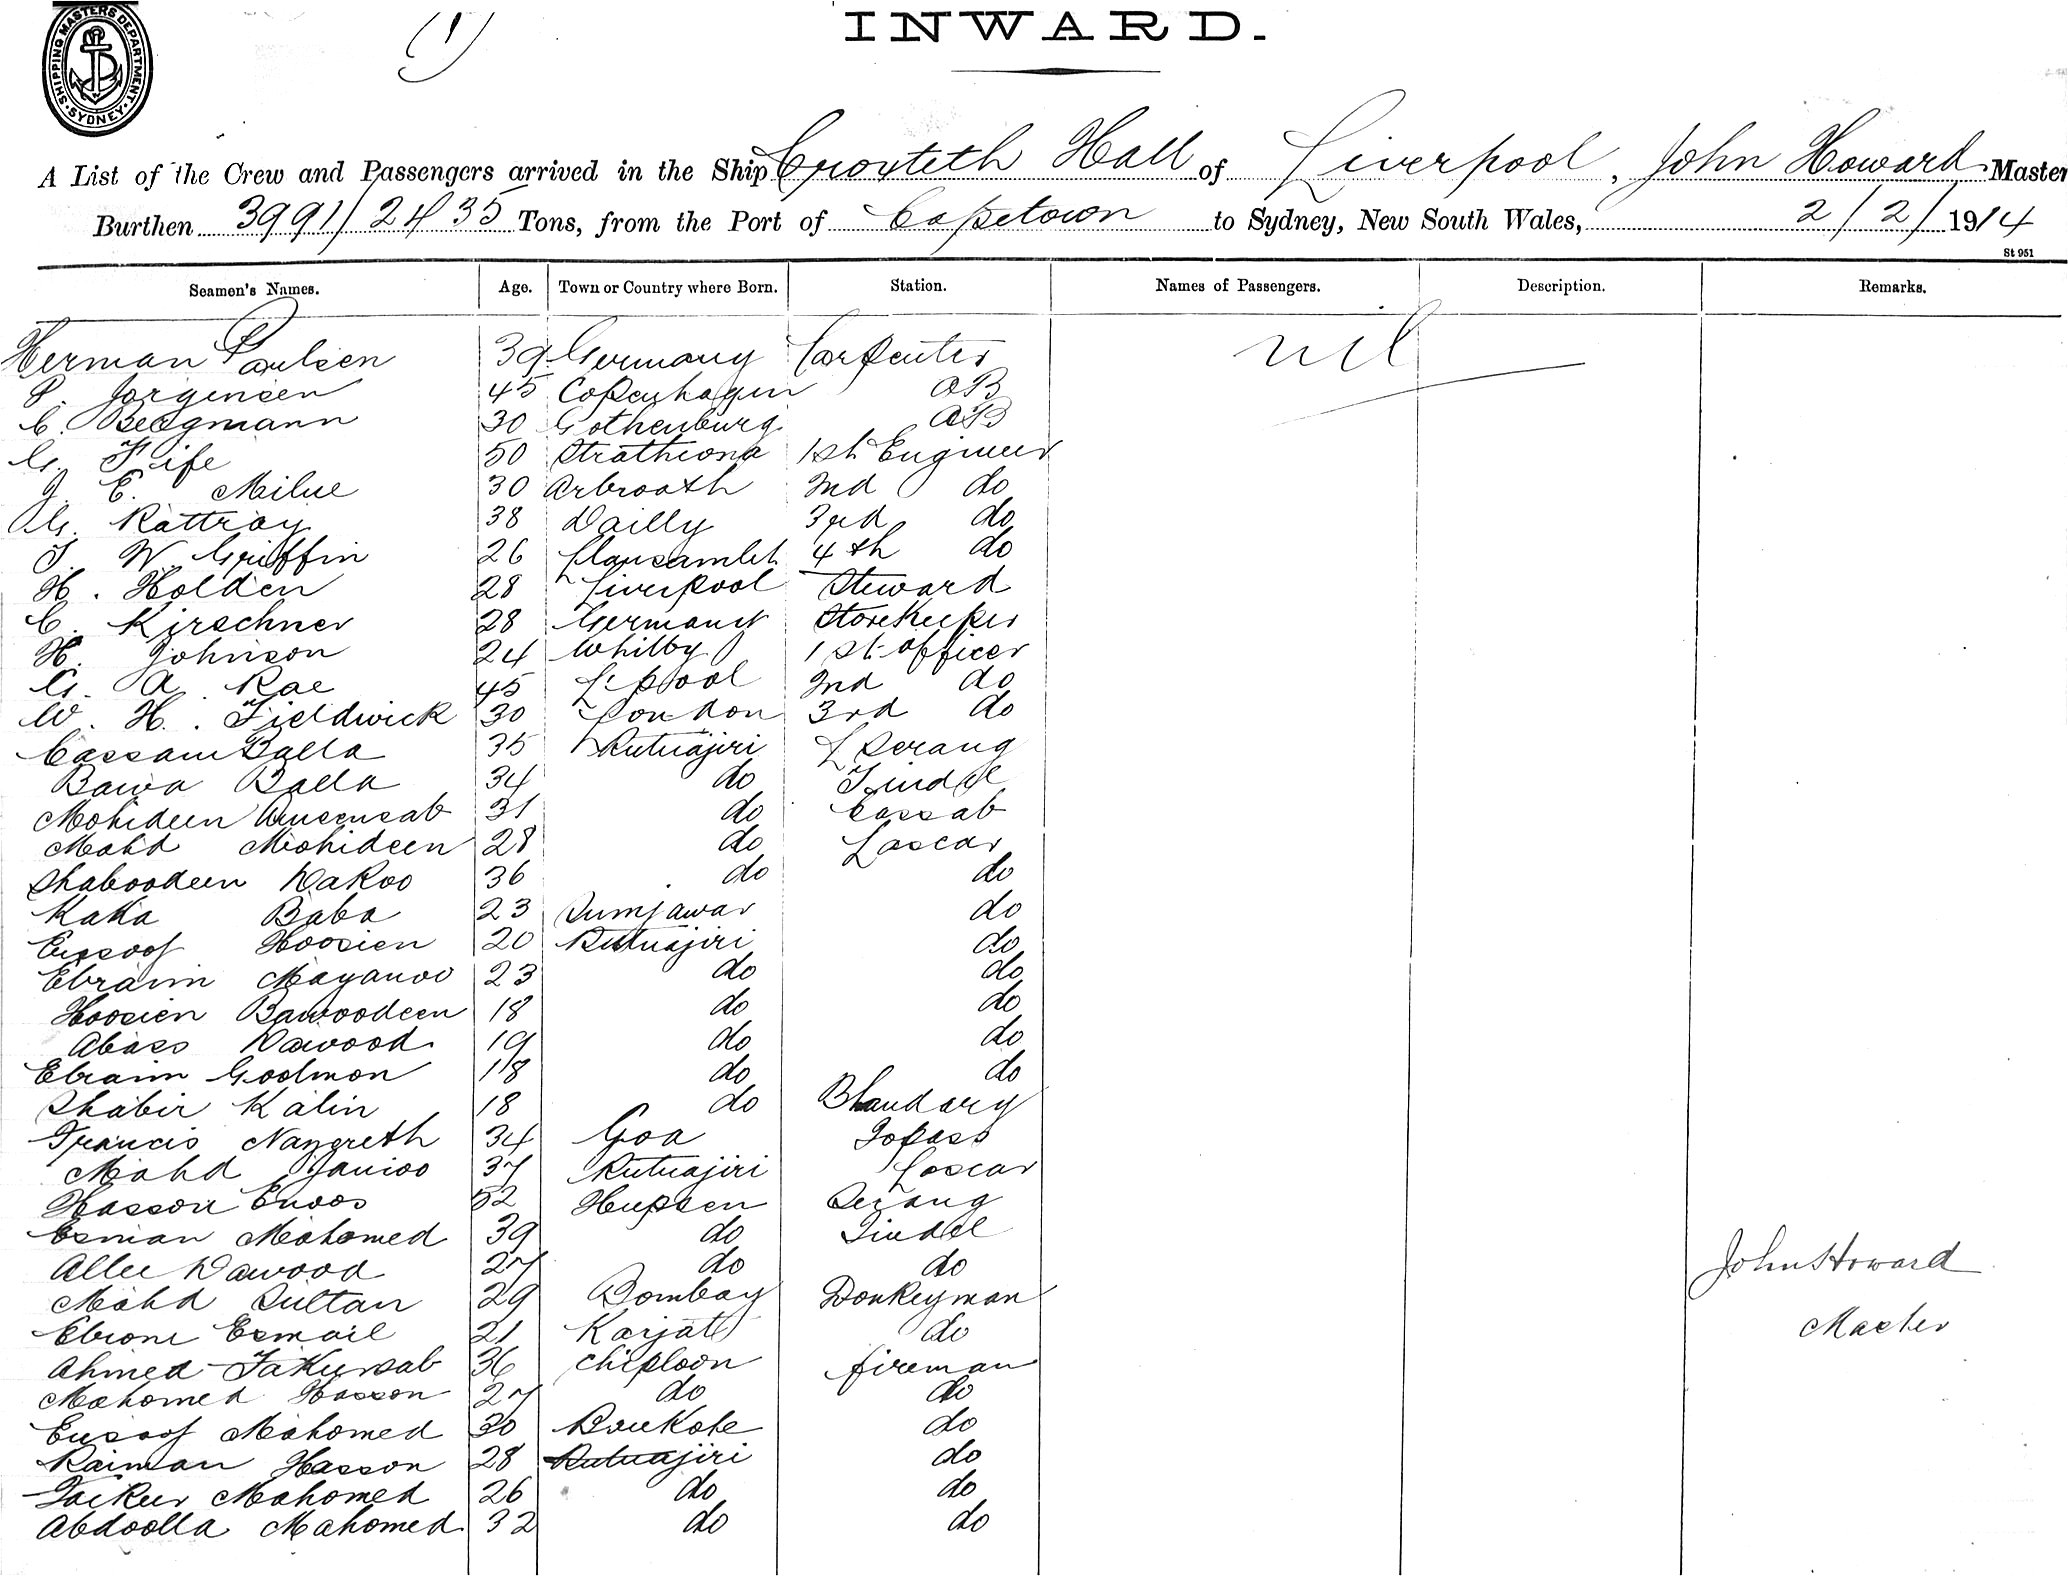 SHIPPING MASTERS DEPARTMENT · SYDNEY ·
(1)
INWARD.
A List of the Crew and Passengers arrived in the Ship Croxteth Hall of Liverpool, John Howard Master
Burthen 3991/2435 Tons, from the Port of Capetown to Sydney, New South Wales, 2/2/1914
St 951
Seamen's Names. Age. Town or Country where Born. Station. Names of Passengers. Description. Remarks.
Herman Paulsen 39 Germany Carpenter nil
P. Jorgensen 45 Copenhagen AB
C. Bergmann 30 Gothenburg AB
G. Fife 50 1st Engineer
J. E. Milne 30 Arbroath 2nd do
G. Rattray 38 Dailly 3rd do
T. W. Griffin 26 Llansamlet 4th do
H. Holden 28 Liverpool Steward
C. Kirschner 28 Germany Storekeeper
H. Johnson 24 Whitby 1st officer
G. A. Rae 45 L'pool 2nd do
W. H. Fieldwick 30 London 3rd do
Cassam Balla 35 Rutnajiri L Serang
Bawa Balla 34 do Tindal
Mohideen 31 do Cassab
Mahd Mohideen 28 do Lascar
Shaboodeen Dakoo 36 do do
Kaka Baba 23 Sumjawar do
Eussoof Hoosien 20 Rutnajiri do
Ebraim Mayanoo 23 do do
Hoosien Bawoodeen 18 do do
Abass Dawood 19 do do
Ebraim Goolmon 18 do do
Shabir Kalin 18 do Bhandary
Francis Nazareth 34 Goa Topass
Mahd Janioo 37 Rutnajiri Lascar
Hasson Enoos 52 Hupsen Serang
Esman Mahomed 39 do Tindal
Allee Dawood 27 do do
John Howard
Mahd Sultan 29 Bombay Donkeyman
Master
Ebrom Esmail 21 Karjat do
Ahmed Fakursab 36 Chiploon fireman
Mahomed Hasson 27 do do
Eusoof Mahomed 30 Bonkote do
Raiman Hasson 28 Rutnajiri do
Fakur Mahomed 26 do do
Abdoolla Mahomed 32 do do